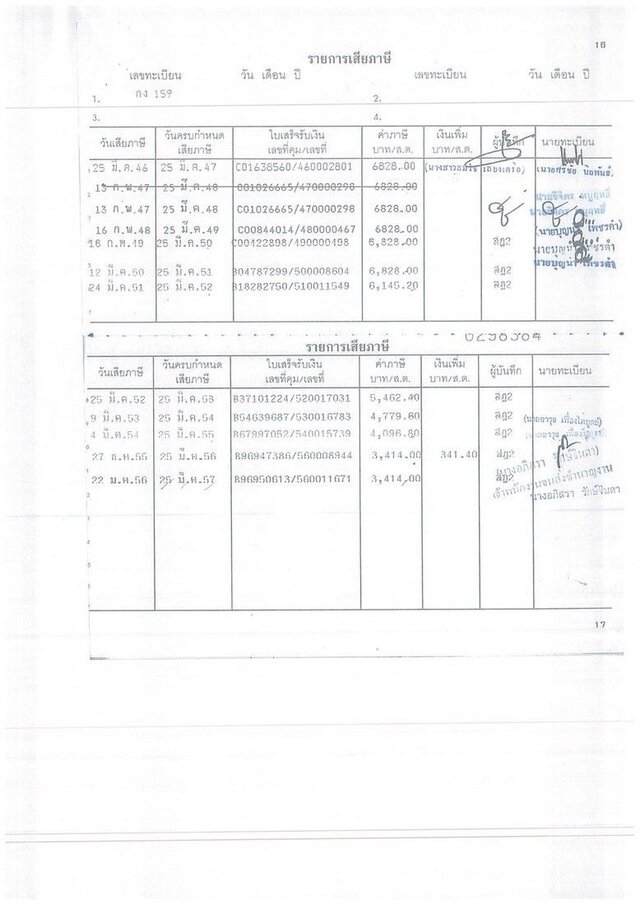 16
รายการเสียภาษี
เลขทะเบียน วัน เดือน ปี เลขทะเบียน วัน เดือน ปี
1. กง 159 2.
3. 4.
วันเสียภาษี วันครบกำหนดเสียภาษี ใบเสร็จรับเงินเลขที่คุม/เลขที่ ค่าภาษีบาท/ส.ต. เงินเพิ่มบาท/ส.ต. ผู้บันทึก นายทะเบียน
25 มี.ค.46 25 มี.ค.47 C01638560/460002801 6828.00
13 ก.พ.47 25 มี.ค.48 C01026665/470000298 6828.00
13 ก.พ.47 25 มี.ค.48 C01026665/470000298 6828.00
16 ก.พ.48 25 มี.ค.49 C00844014/480000467 6828.00
16 ก.พ.49 25 มี.ค.50 C00422898/490000498 6,828.00 สฎ2
12 มี.ค.50 25 มี.ค.51 B04787299/500008604 6,828.00 สฎ2
24 มี.ค.51 25 มี.ค.52 B18282750/510011549 6,145.20 สฎ2
รายการเสียภาษี
วันเสียภาษี วันครบกำหนดเสียภาษี ใบเสร็จรับเงินเลขที่คุม/เลขที่ ค่าภาษีบาท/ส.ต. เงินเพิ่มบาท/ส.ต. ผู้บันทึก นายทะเบียน
25 มี.ค.52 25 มี.ค.53 B37101224/520017031 5,462.40 สฎ2
9 มี.ค.53 25 มี.ค.54 B54639687/530016783 4,779.60 สฎ2
4 มี.ค.54 25 มี.ค.55 B67997052/540015739 4,096.80 สฎ2
27 ธ.ค.55 25 มี.ค.56 B96947386/560008944 3,414.00 341.40 สฎ2
22 ม.ค.56 25 มี.ค.57 B96950613/560011671 3,414.00 สฎ2
เจ้าพนักงานขนส่งชำนาญงาน
นางอภิสรา รักษ์จินดา
17